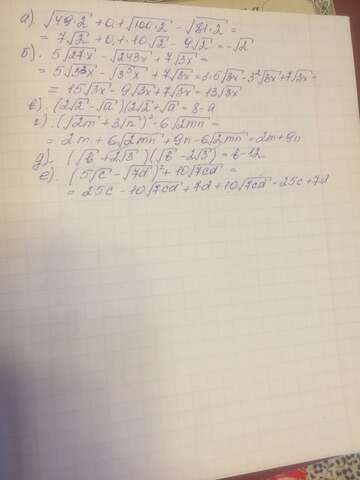 а). √49·2 + 0,1√100·2 - √81·2 =
= 7√2 + 0,1·10√2 - 9√2 = -√2
б). 5√27x - √243x + 7√3x =
= 5√3³x - √3⁵x + 7√3x = 3·5√3x - 3²√3x + 7√3x =
= 15√3x - 9√3x + 7√3x = 13√3x
в). (2√2 - √a)(2√2 + √a = 8 - a
г). (√2m + 3√n)² - 6√2mn =
= 2m + 6√2mn + 9n - 6√2mn = 2m + 9n
д). (√b + 2√3)(√b - 2√3) = b - 12
е). (5√c - √7d)² + 10√7cd =
= 25c - 10√7cd + 7d + 10√7cd = 25c + 7d